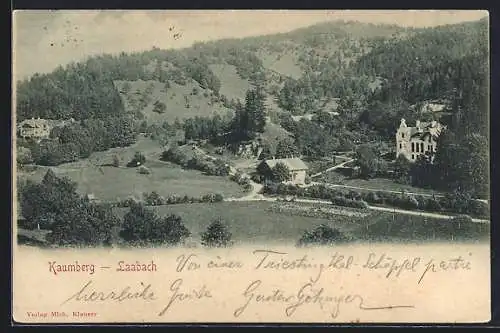 Kaumberg — Laabach
Von einer Triestingthal-Schöpfl partie
herzliche Grüße
Verlag Mich. Klauser